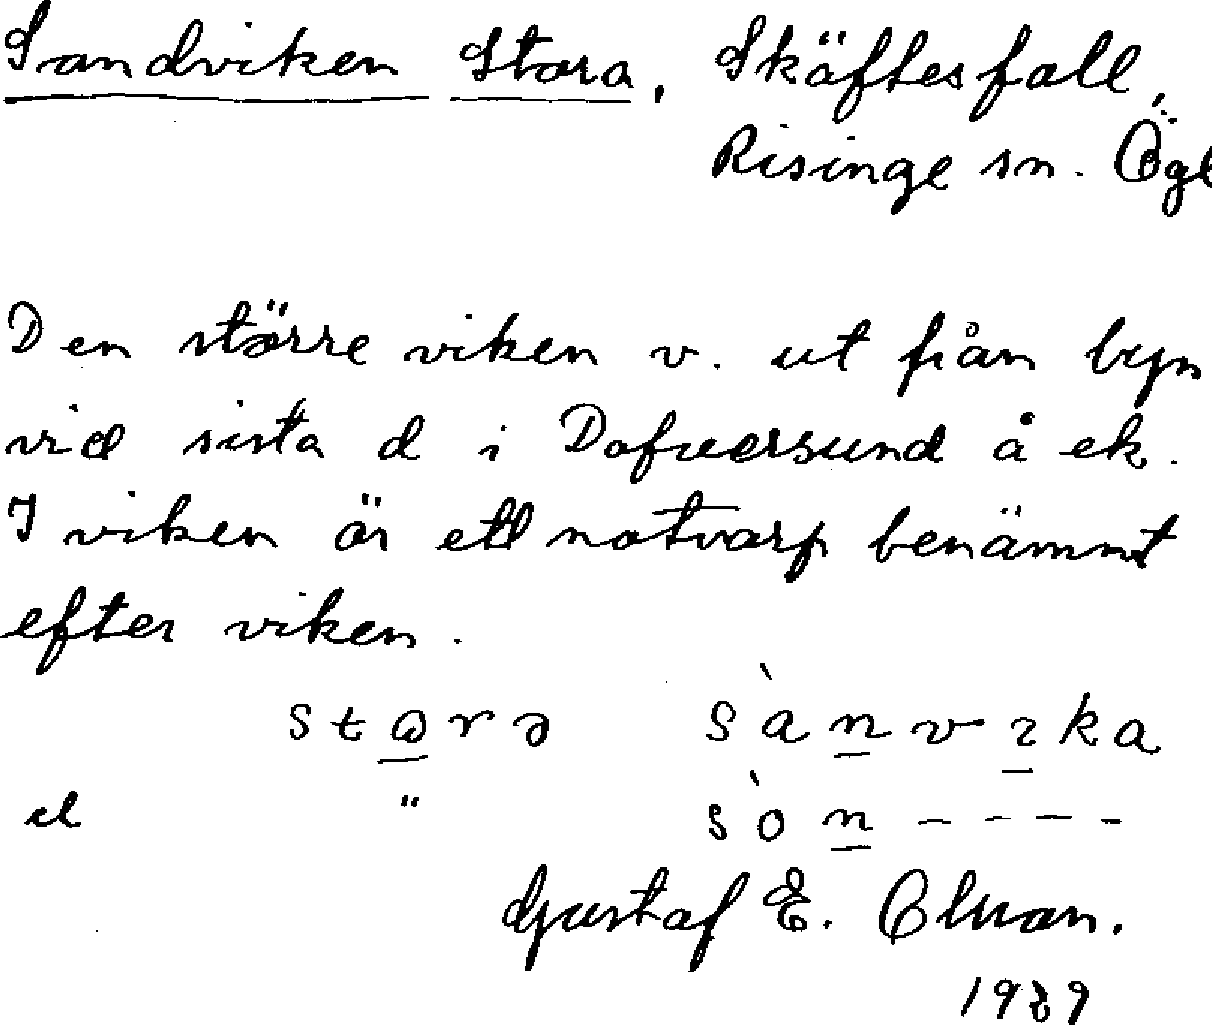 Sandviken Stora, Skäftesfall,
Risinge sn. Ögl
Den större viken v. ut från byn
vid sista d i Dofversund å ek.
I viken är ett notvarp benämnt
efter viken.
stɷrə sànvıka
el " sòn ----
Gustaf E.
1929